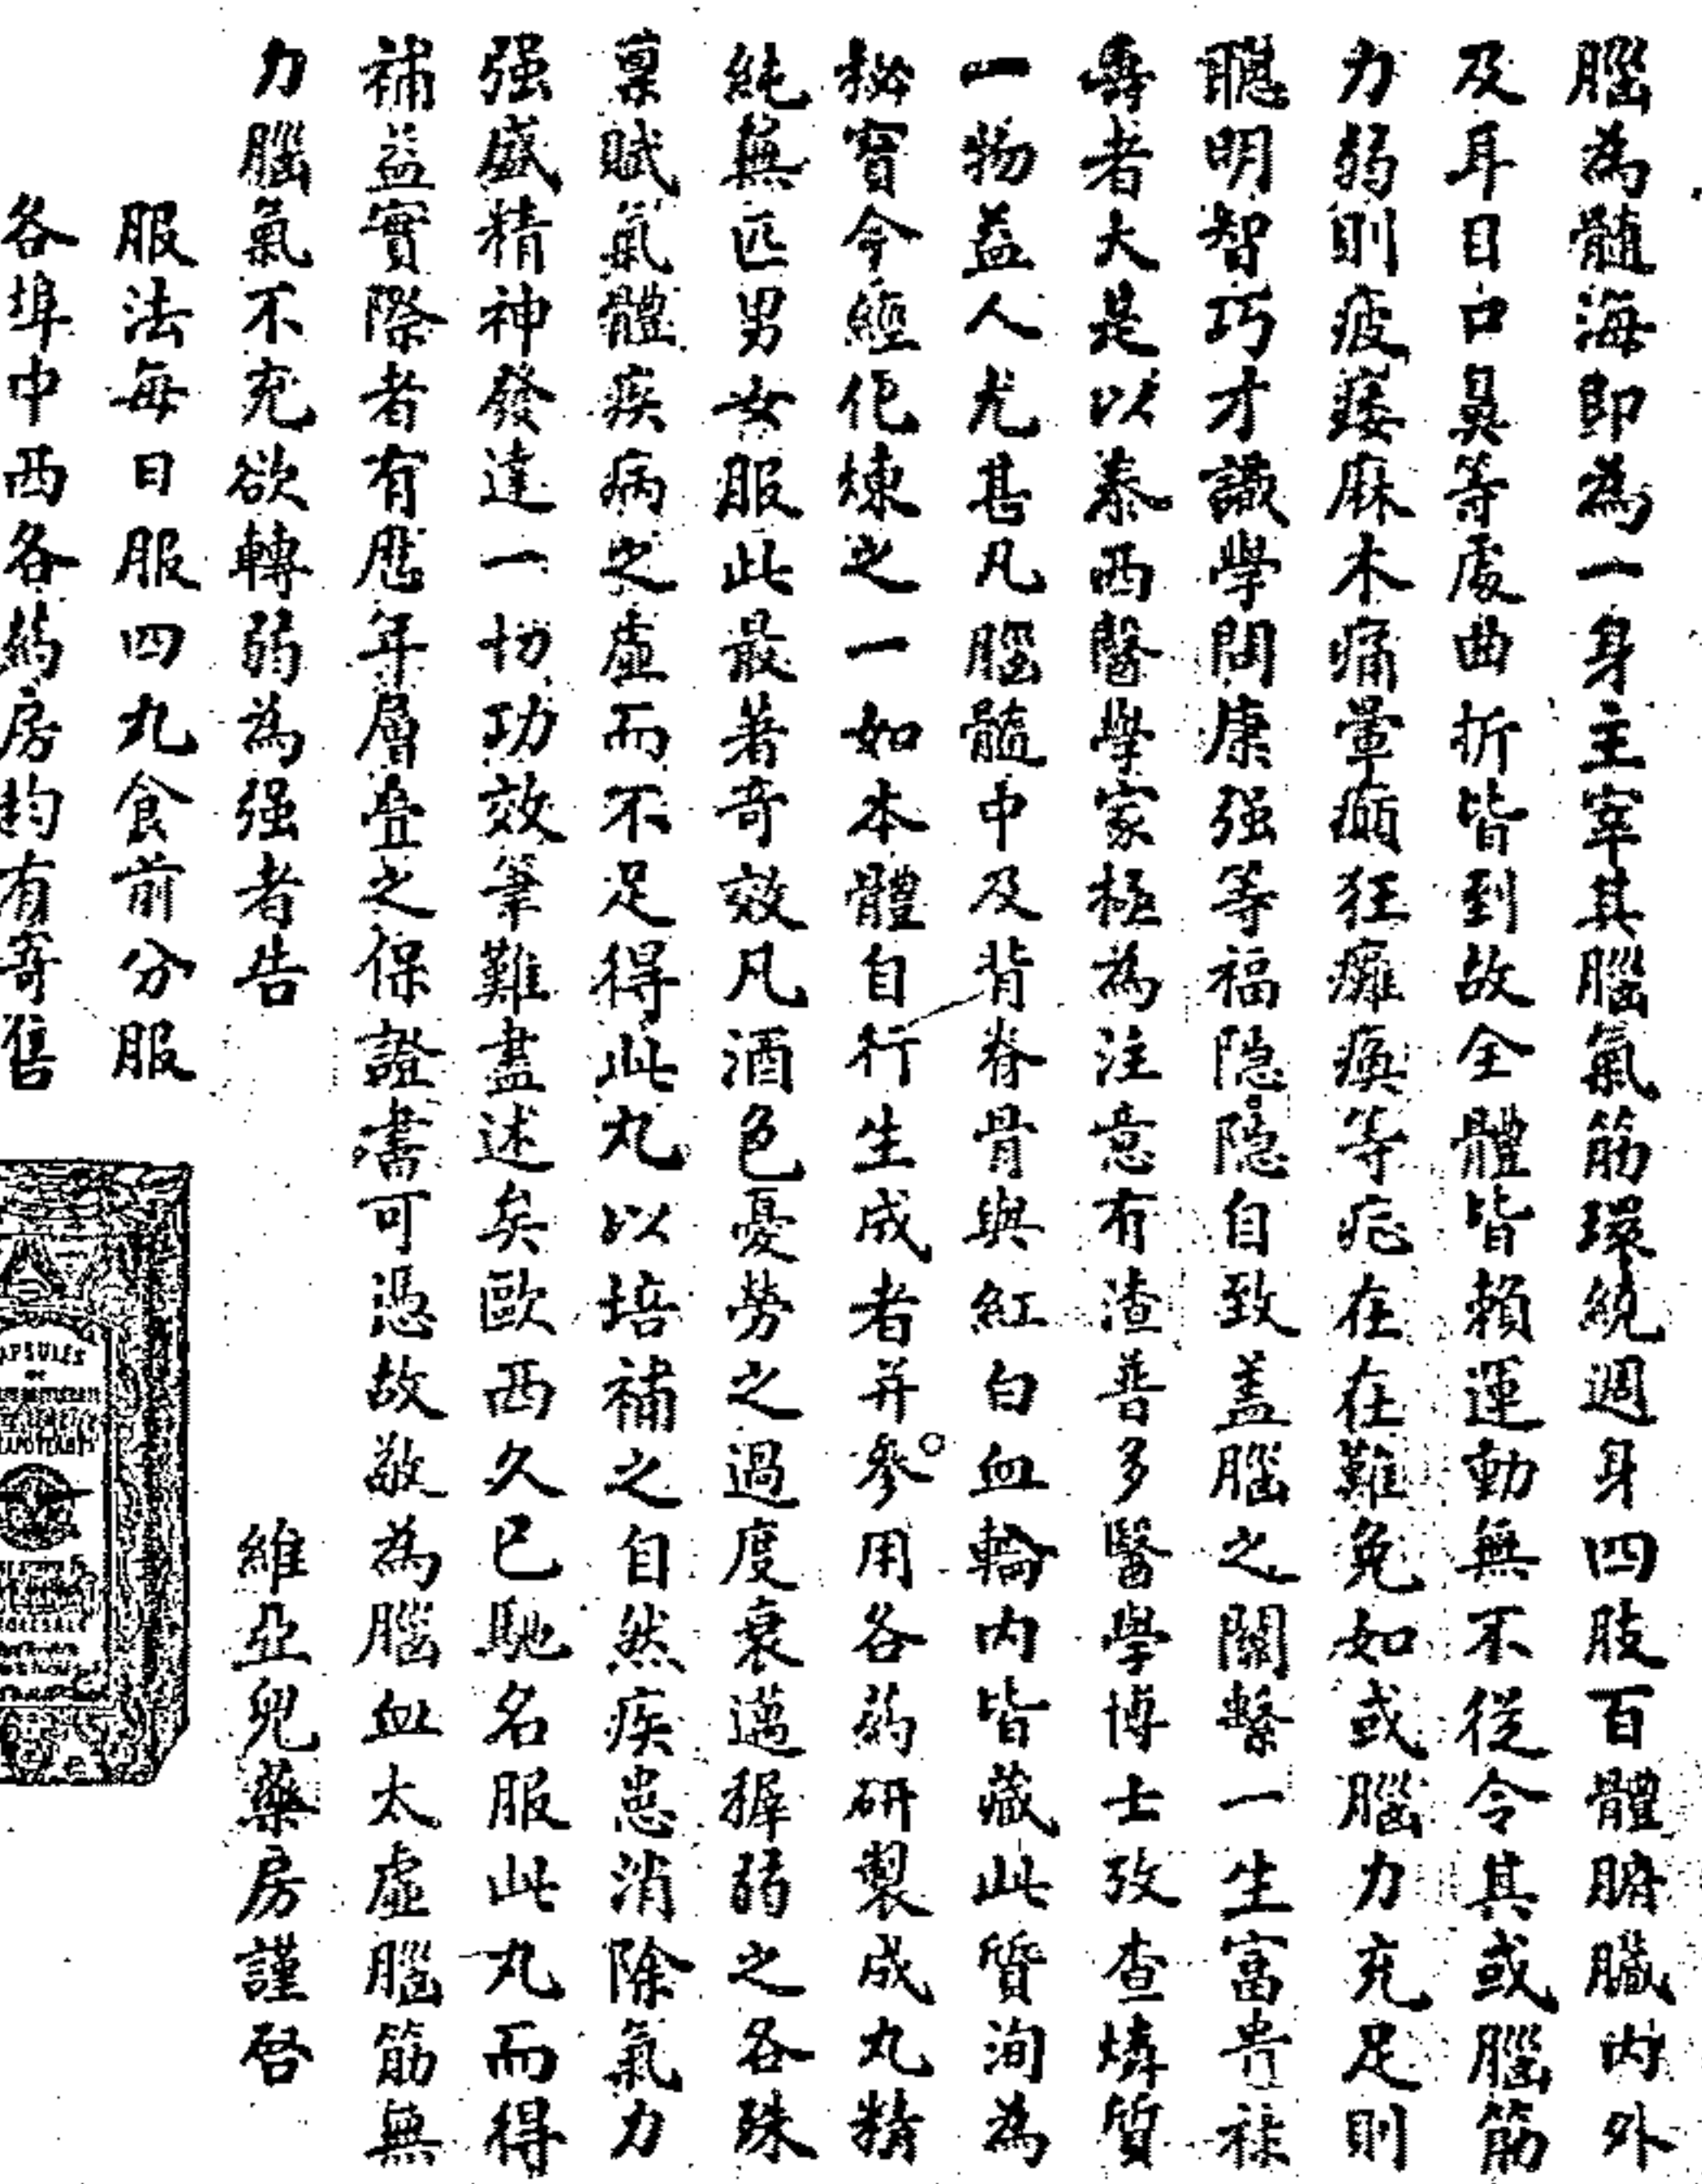 腦為髓海即為一身主宰其腦氣筋環繞週身四肢百體腑臟內外
及耳目口鼻等處曲折皆到故全體皆賴運動無不從令其或腦筋
力弱則疲痿麻木痛暈癲狂癱瘓等症在在難免如或腦力充足則
聰明智巧才識學問康强等福隱隱自致盖腦之關繫一生富貴祿
壽者大是以泰西醫學家極為注意有渣普多醫學博士攷查燐質
一物益人尤甚凡腦髓中及背脊骨與紅白血輪內皆藏此質洵為
秘寶今經化煉之一如本體自行生成者并參用各葯研製成丸精
純無匹男女服此最著奇效凡酒色憂勞之過度衰邁穉弱之各殊
稟賦氣體疾病之虛而不足得此丸以培補之自然疾患消除氣力
强盛精神發達一切功效筆難盡述矣歐西久已馳名服此丸而得
補益實際者有歷年層叠之保證書可憑故敬為腦血太虛腦筋無
力腦氣不充欲轉弱為强者告
維亞兒藥房謹啓
服法每日服四丸食前分服
各埠中西各葯房均有寄售
APSULES